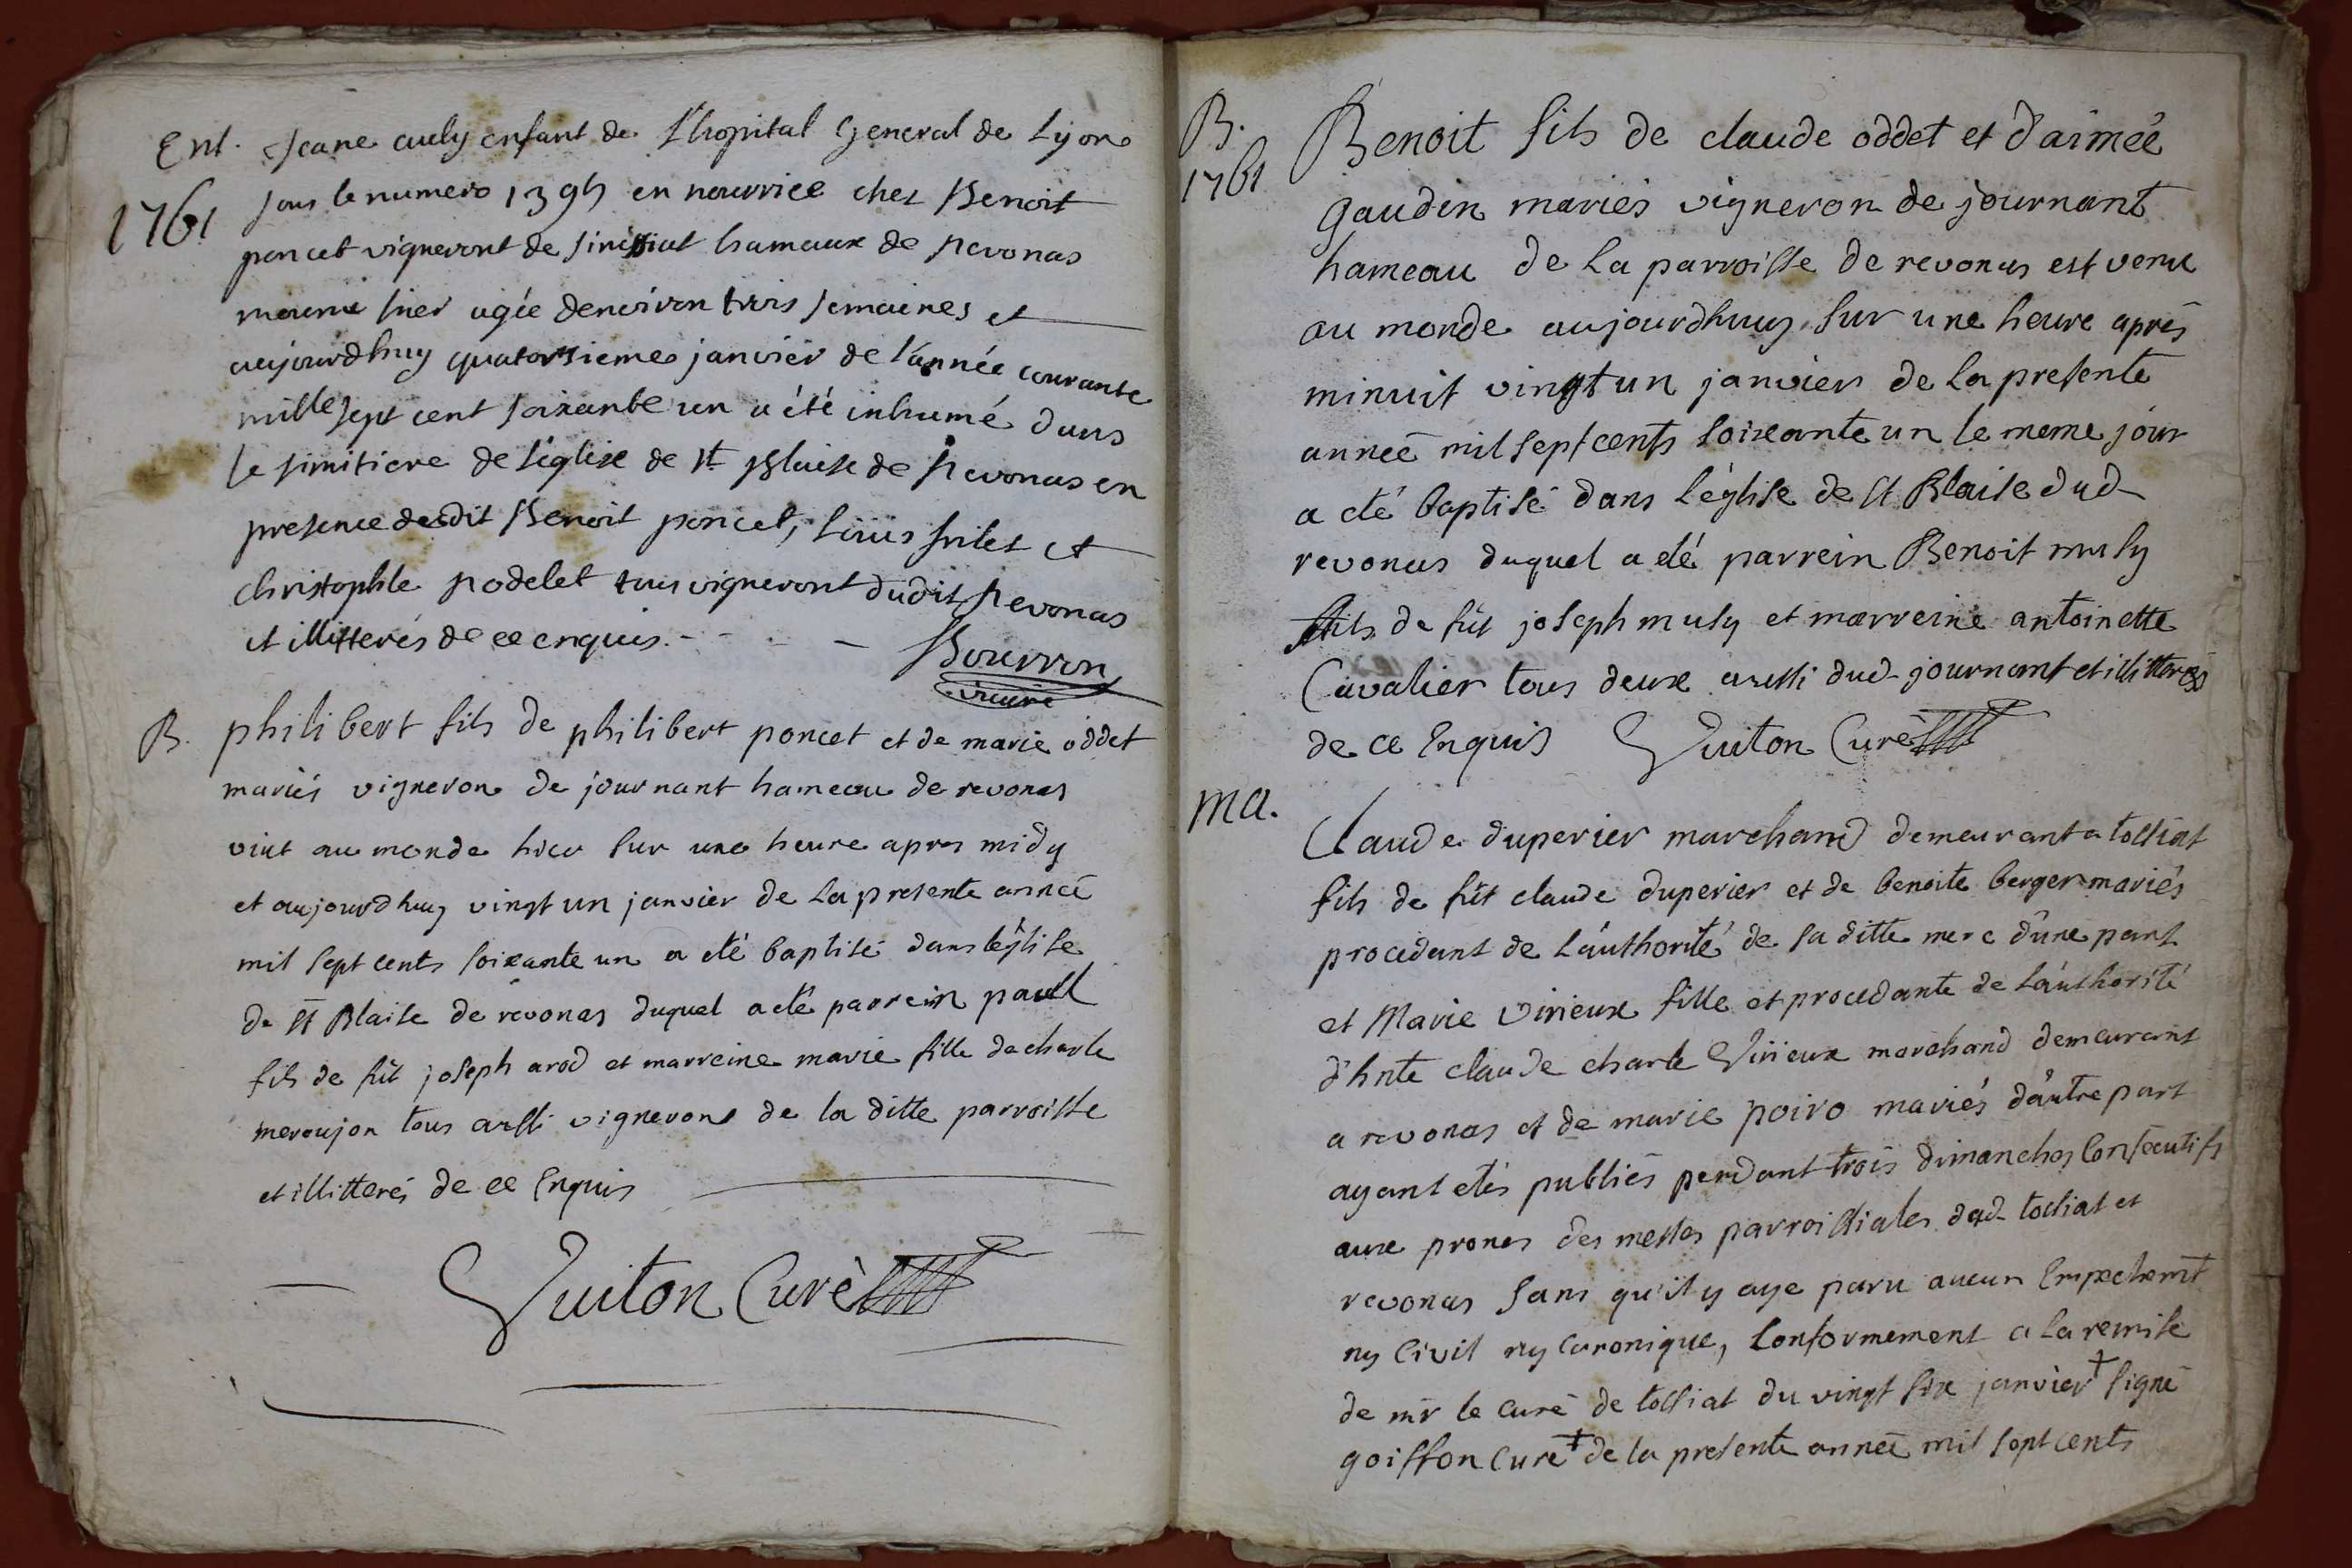 Ent. Jeane cuely enfant de l'hopital General de Lyon
1761 sous le numero 1395 en nourrice chez Benoit
poncet vigneront de simissiat hameaux de Revonas
mourut hier agée denviron trois semaines et
aujourdhuy quatorsieme janvier de l'année courante
mille sept cent soixante un a été inhumé dans
le simitiere de l'église de st Blaise de Revonas en
presence dudit Benoit poncet, Loüis et
christophle Rodelet tous vigneront dudit Revonas
et illitterés de ce enquis. - - - - Bourron
vicaire
B. philibert fils de philibert poncet et de marie oddet
mariés vigneron de journant hameau de revonas
vint au monde hier sur une heure apres midy
et aujourdhuy vingt un janvier de la presente année
mil sept cents soixante un a eté baptisé dans léglise
de st Blaise de revonas duquel a eté parrein paul
fils de fût joseph arod et marreine marie fille de charle
meroujon tous aussi vignerons de la ditte parroisse
et illitterés de ce Enquis
Guiton Curè
B. Benoit fils de claude oddet et d'aimée
1761 gaudin mariés vigneron de journant
hameau de la parroisse de revonas est venu
au monde aujourdhuy sur une heure aprés
minuit vingt un janvier de la presente
année mil sept cents soixante un le meme jour
a eté baptisé dans l'église de st Blaise dud
revonas duquel a eté parrein Benoit musy
fils de fût joseph musy et marreine antoinette
Cavalier tous deux aussi dud journant et illitterés
de ce Enquis Guiton Curè
ma. Claude duperier marchand demeurant a tossiat
fils de fût claude duperier et de benoite berger mariés
procedant de l'authorité de sa ditte mere d'une part
et Marie Virieux fille et procedante de l'authorité
d'hnte claude charle Virieux marchand demeurant
a revonas et de marie poiro mariés d'autre part
ayant etés publiés pendant trois dimanches Consécutifs
aux prones des messes parroissiales dud tossiat et
revonas sans qu'il y aye paru aucun Empechemt
ny Civil ny Canonique, Conformement a la remise
de mr le curé de tossiat du vingt six janvier ‡ signé
goiffon Curé ‡ de la presente année mil sept cents